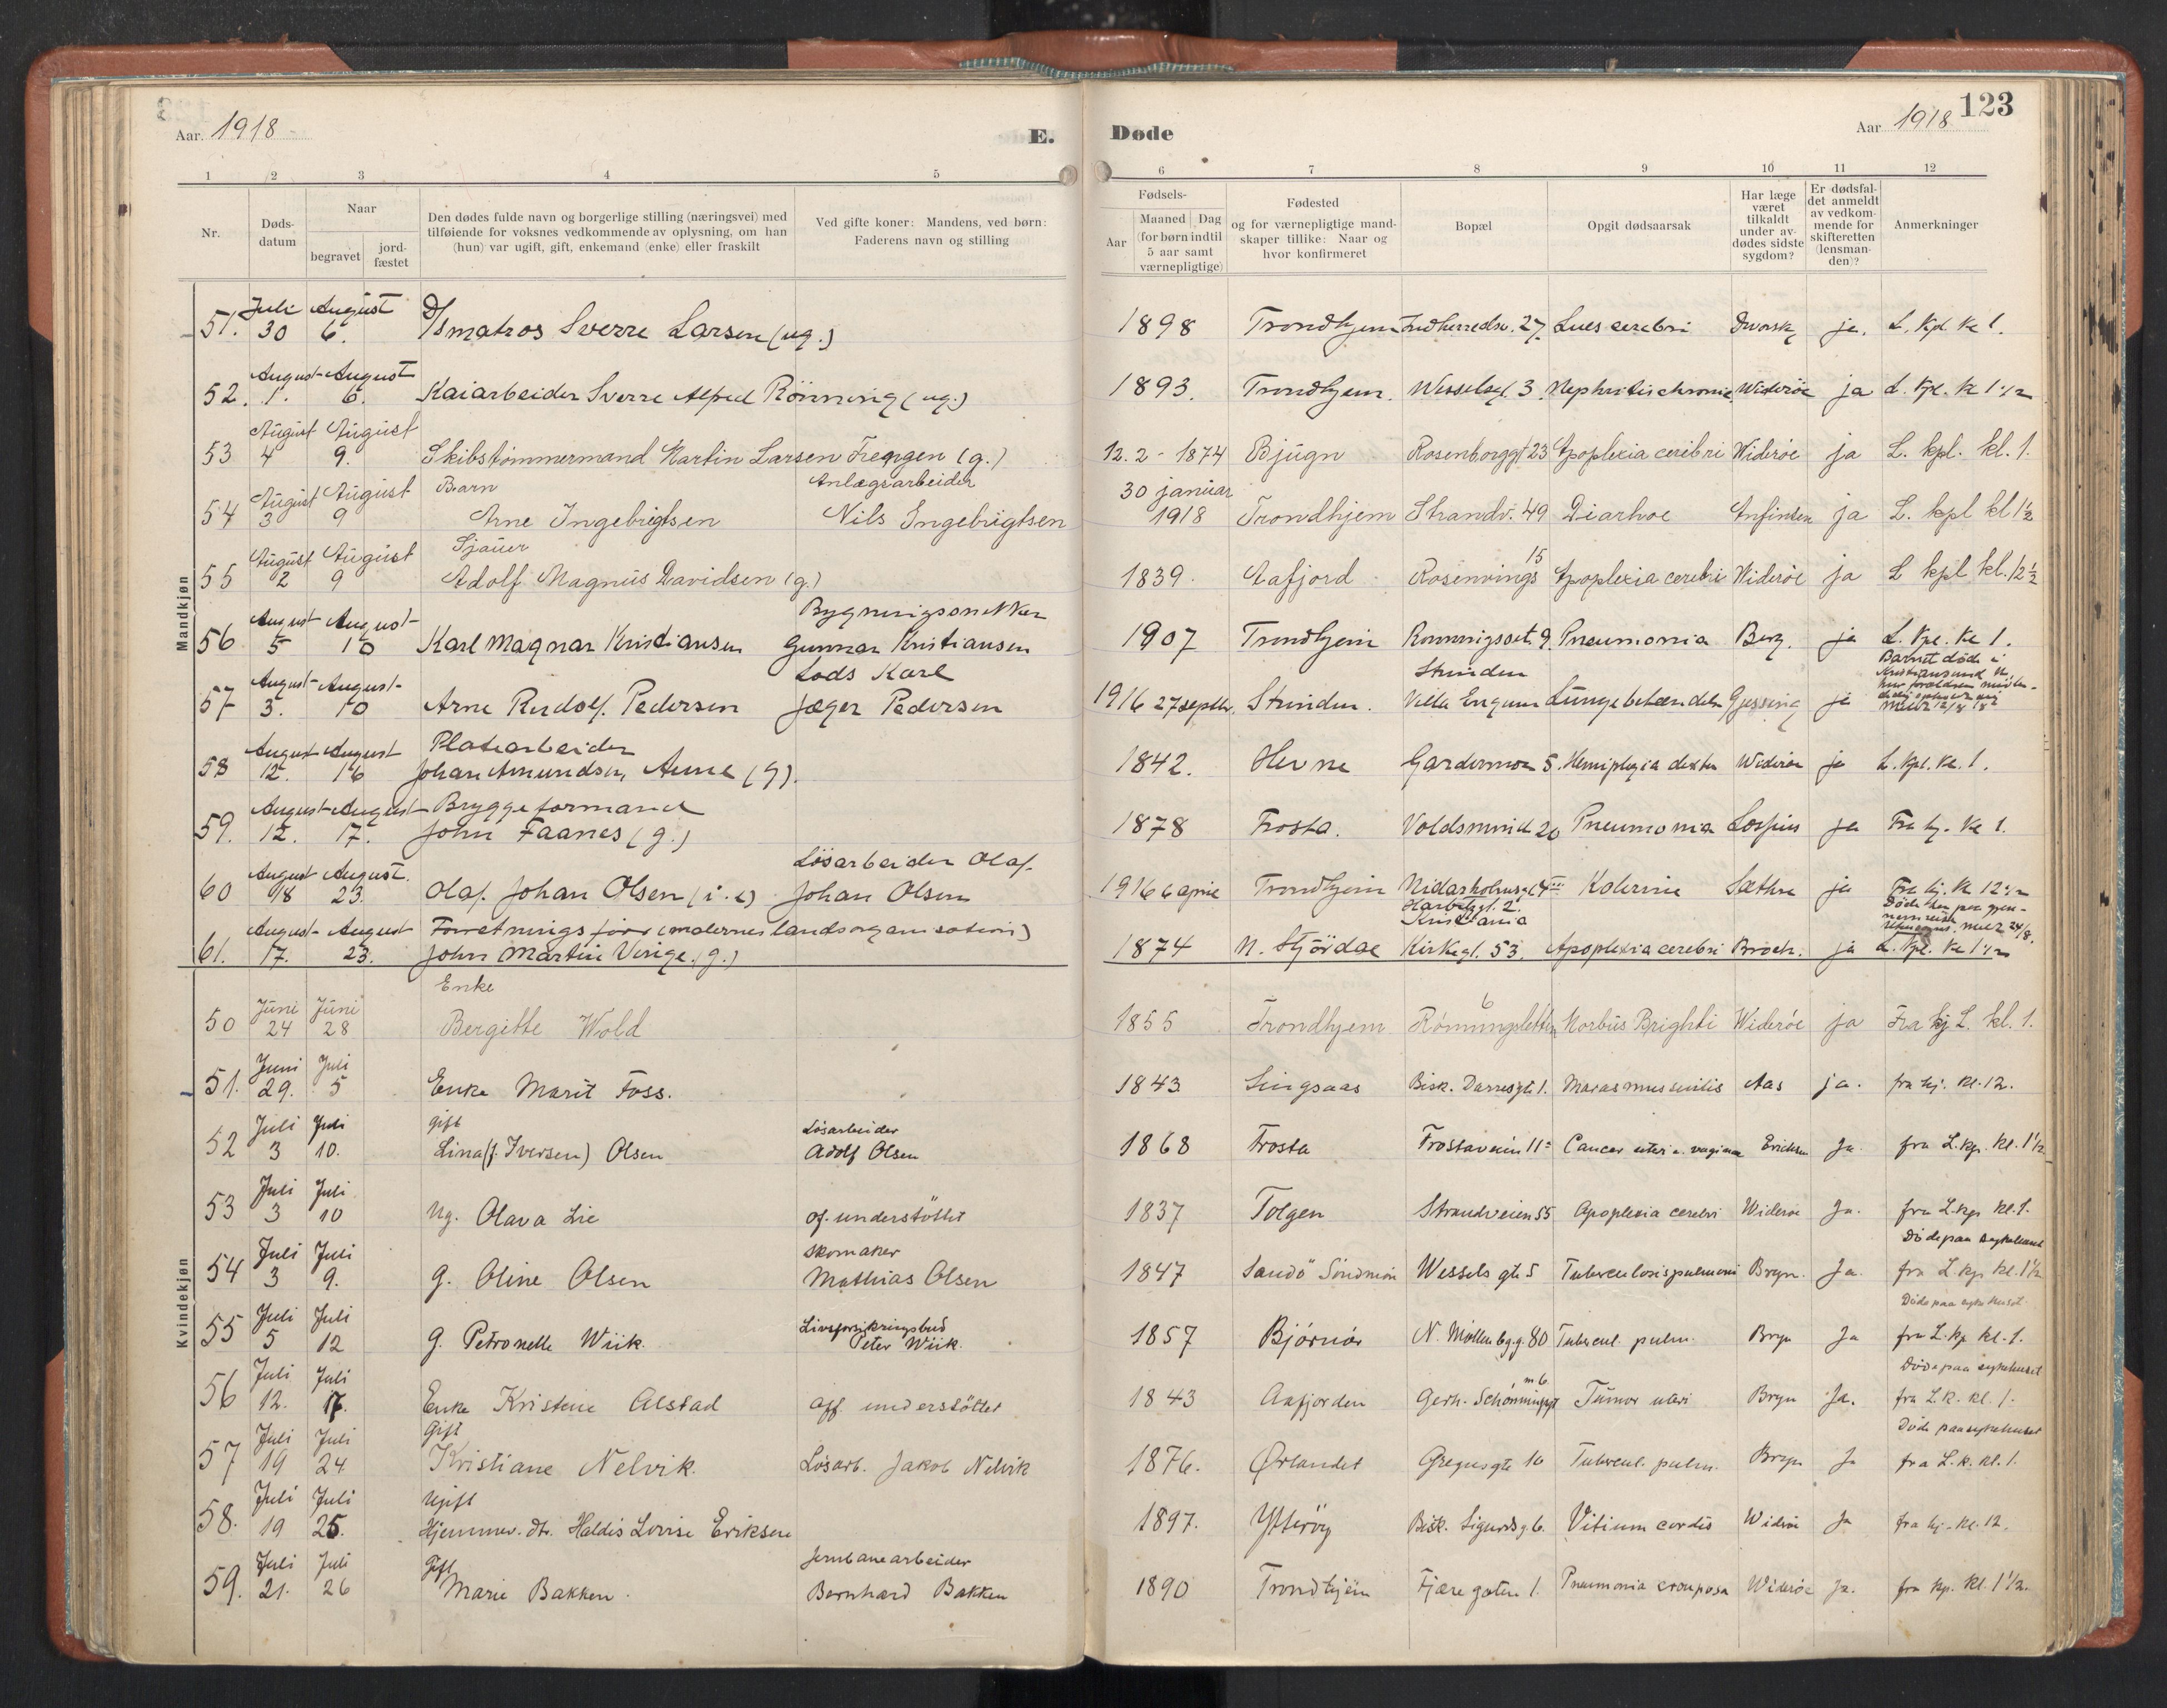 Aar. 1918
E. Døde
Aar 1918
123
1 2 3 4 5 6 7 8 9 10 11 12
Nr.
Døds-
datum
Naar
begravet
jord-
fæstet
Den dødes fulde navn og borgerlige stilling (næringsvei) med
tilføiende for voksnes vedkommende av oplysning, om han
(hun) var ugift, gift, enkemand (enke) eller fraskilt
Ved gifte koner: Mandens, ved børn:
Faderens navn og stilling
Fødsels-
Aar
Maaned Dag
(for børn indtil
5 aar samt
værnepligtige)
Fødested
og for værnepligtige mand-
skaper tillike: Naar og
hvor konfirmeret
Bopæl
Opgit dødsaarsak
Har læge
været
tilkaldt
under av-
dødes sidste
sygdom?
Er dødsfal-
det anmeldt
av vedkom-
mende for
skifteretten
(lensman-
den)?
Anmerkninger
Mandkjøn
Juli August
51. 30 6. D/S matros Sverre Larsen (ug.) 1898 Trondhjem Indherredsv. 27. Lues cerebri ja. L. Kpl. Kl 1.
August August
52. 1. 6. Kaiarbeider Sverre Alfred Rönning (ug.) 1893. Trondhjem. Wesselsgt. 3. Nephritis chronic Widerøe ja L. Kpl. Kl 1 1/2
August August
53 4 9. Skibstømmermand Martin Larsen (g.) 12.2 - 1874 Bjugn Rosenborggt 23 Apoplexia cerebri Widerøe ja L. kpl. kl. 1.
August August Barn Anlægsarbeider 30 januar
54 3 9 Arne Ingebrigtsen Nils Ingebrigtsen 1918 Trondhjem Strandv. 49 Diarhoe Anfinsen ja L. kpl kl 1 1/2
August August Sjauer 15
55 2 9 Adolf Magnus Davidsen (g.) 1839. Aafjord Rosenvings Apoplexia cerebri Widerøe ja L kpl kl. 12 1/2
August August Bygningssnekker
56 5 10 Karl Magnar Kristiansen Gunnar Kristiansen 1907 Trondhjem 9. Pneumonia Berg. ja L. Kpl. Kl 1.
August August Lods Karl Strinden Barnet döde i
Kristiansund N.
57 3. 10 Arne Rudolf Pedersen Jæger Pedersen 1916 27 septbr. Strinden. Villa Lungebetændelse Gjessing ja
August August Platearbeider
58 12. 16 Johan Amundsen Aune (g). 1842. Hevne Gardermoen 5. Hemiplegia dextra Widerøe ja L. Kpl. Kl. 1.
August August Bryggeformand
59. 12. 17. John Faanes (g.) 1878 Frosta. Voldsmind 20 Pneumonia ja Fra hj. Kl 1.
August August. Løsarbeider Olaf
60 18 23. Olaf Johan Olsen Johan Olsen 1916 6 april Trondhjem Nidarholmsgt Kolerine Sæthre ja Fra hj. Kl 12 1/2
August August Forretningsförer (malernes landsorganisation) Kristiania
61. 17. 23. John Martin Verige (g.) 1874 N. Stjördal Kirkegt. 53. Apoplexia cerebri Broch. ja L. Kpl. Kl 1 1/2
Kvindekjøn
Juni Juni Enke 6
50 24 28 Bergitte Wold 1855 Trondhjem Rönningsletten Morbus Brighti Widerøe ja Fra hj L. kl. 1.
Juni Juli
51. 29. 5 Enke Marit Foss. 1843 Singsaas Bisk. Darresgt. 1. Marasmus senilis Aas ja. fra hj. Kl. 12.
Juli Juli gift Løsarbeider
52 3 10. Lina (f. Iversen) Olsen Adolf Olsen 1868 Frosta Frostaveien 11 Cancer uteri & vaginae Ericksen Ja. fra L. kp. Kl. 1 1/2
Juli Juli
53 3 10 Ug. Olava Lie of. understöttet 1837 Tolgen Strandveien 55 Apoplexia cerebri Widerøe Ja. fra L. kp. Kl. 1.
Juli Juli Skomaker Døde paa sykehuset
54 3 9. g. Oline Olsen Mathias Olsen 1847 Sandö Söndmör Wessels gt 5 Tuberculosis pulmoni Bryn. Ja. fra L. kp. Kl. 1 1/2
Juli Juli Livsforsikringsbud Døde paa sykehuset
55 5 12 g. Petronelle Wiik. Peter Wiik. 1857 Bjørnör N. Møllenbg.g. 80 Tubercul. pulm. Bryn Ja fra L. kp kl. 1.
Juli Juli Døde paa sykehuset
56 12. 17. Enke Kristine Alstad off. understöttet 1843 Aafjorden Gerh. Schønningsgt Tumor uteri Bryn Ja. fra L. k. kl. 1.
Juli Juli Gift Døde paa sykehuset
57 19 24 Kristiane Nelvik. Løsarb. Jakob Nelvik 1876. Ørlandet Gregusgt 10 Tubercul. pulm. Bryn Ja fra L. k. kl. 1.
Juli Juli Ugift
58. 19 25. Hjemmev. dt. Haldis Lovise Eriksen 1897. Ytterøy Bisk. Sigurdsg. 6. Vitium cordis Widerøe Ja fra hj. Kl. 12.
Juli Juli Gift Jernbanearbeider
59. 21. 26 Marie Bakken. Bernhard Bakken 1890 Trondhjem Fjæregaten 1. Pneumonia crouposa Widerøe Ja. fra kp. kl. 1 1/2.